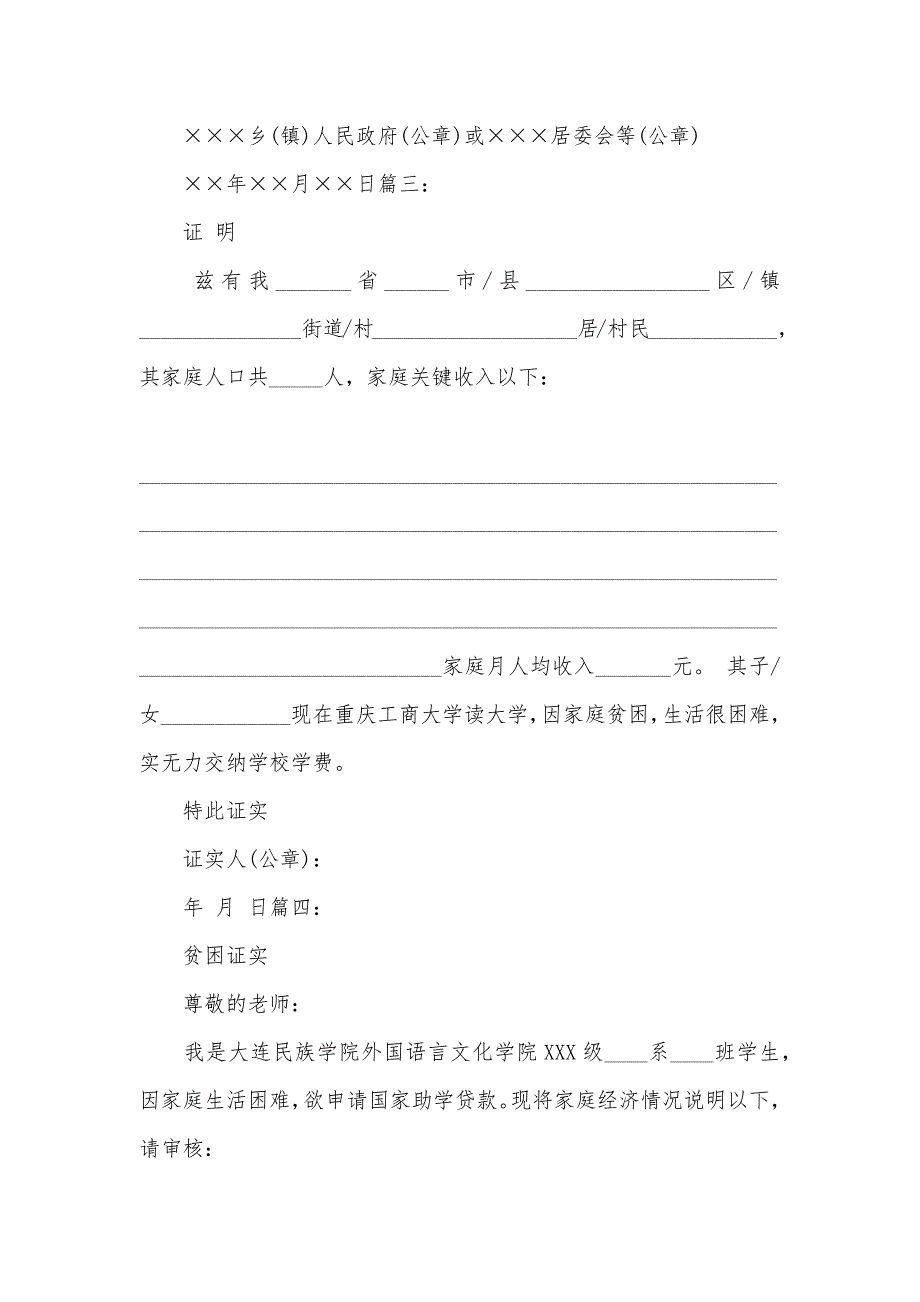 ×××乡(镇)人民政府(公章)或×××居委会等(公章)
××年××月××日篇三：
证 明
兹有我_______省______市/县_________________区/镇
_______________街道/村___________________居/村民____________，
其家庭人口共_____人，家庭关键收入以下：
___________________________________________________________
___________________________________________________________
___________________________________________________________
___________________________________________________________
____________________________家庭月人均收入_______元。 其子/
女____________现在重庆工商大学读大学，因家庭贫困，生活很困难，
实无力交纳学校学费。
特此证实
证实人(公章)：
年 月 日篇四：
贫困证实
尊敬的老师：
我是大连民族学院外国语言文化学院XXX级____系____班学生，
因家庭生活困难，欲申请国家助学贷款。现将家庭经济情况说明以下，
请审核：